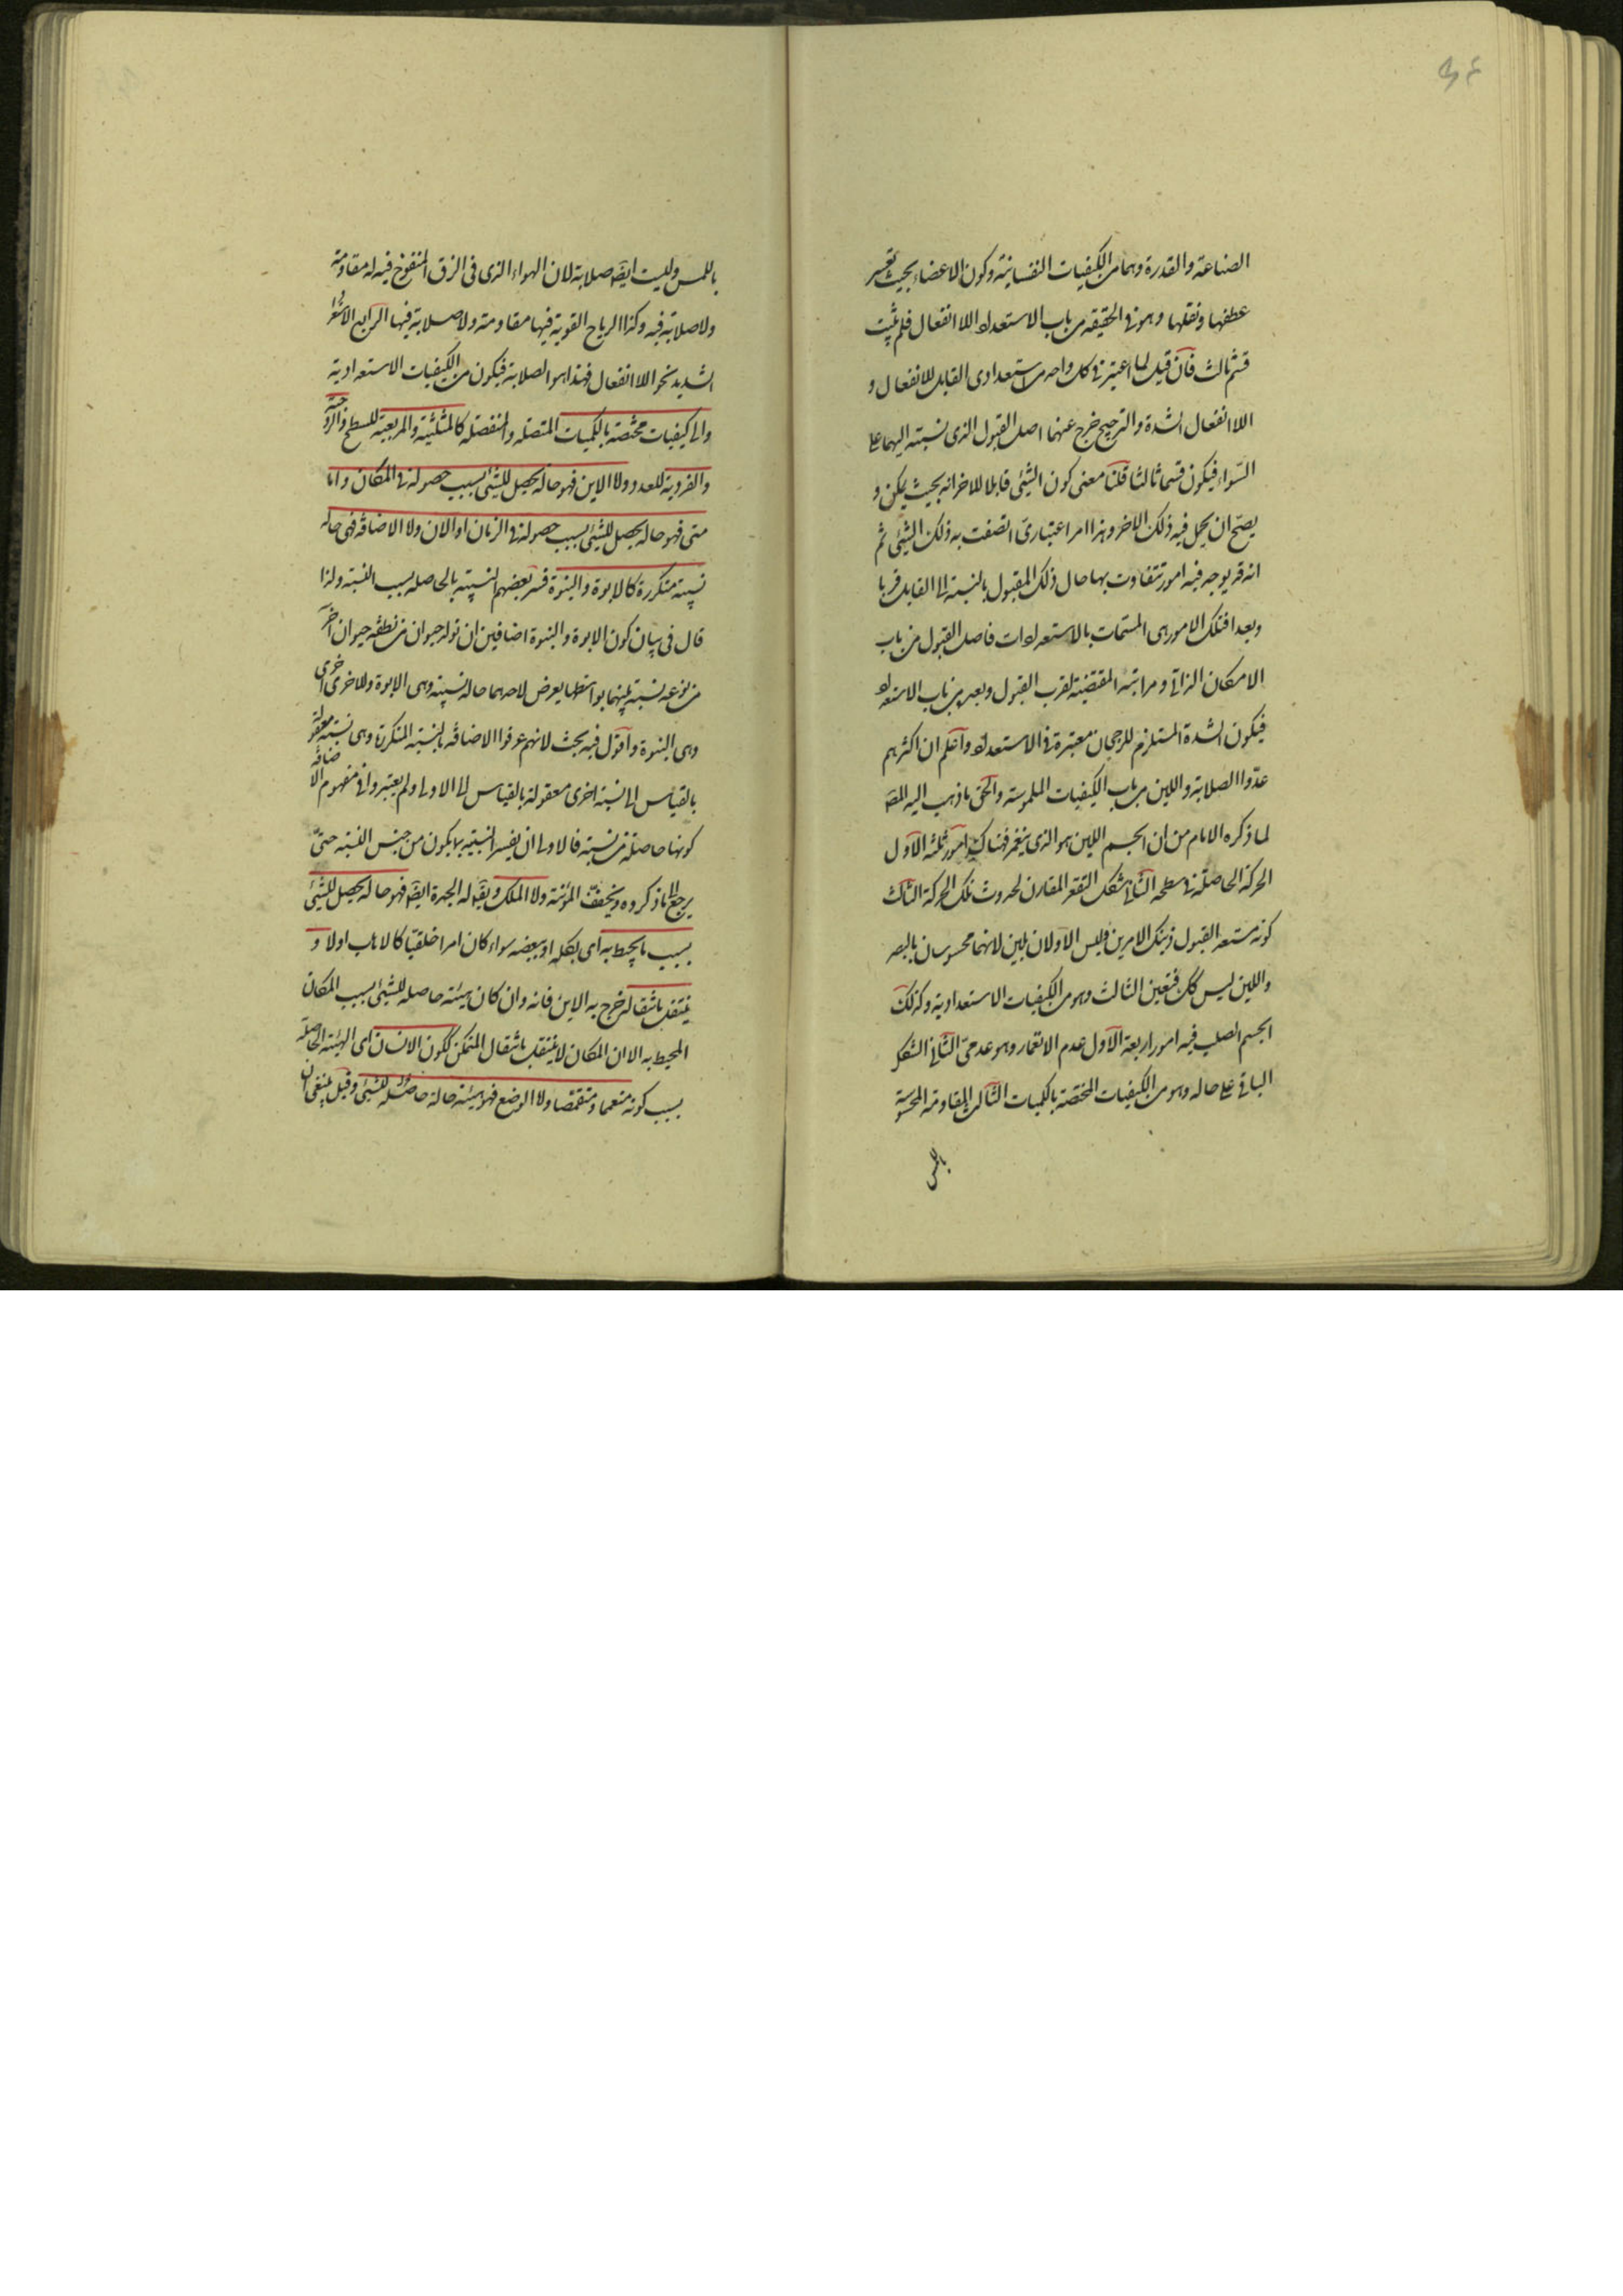 ٣٤
الصناعة والقدرة وهما من الكيفيات النفسانية وكون الاعضاء بحيث تعسر
عطفها ونقلها وهو فى الحقيقة من باب الاستعداد اللا انفعال فلم يثبت
قسم ثالث فان قيل لما اعتبر فى كل واحد من استعدادى القابل للانفعال و
اللا انفعال الشدة والترجيح خرج عنهما اصل القبول الذى نسبته اليهما على
السواء فيكون قسما ثالثا قلنا معنى كون الشيئ قابلا للاخر انه بحيث يمكن و
يصح ان يحل فيه ذلك الاخر وهذا امر اعتبارى اتصفت به ذلك الشيئ ثم
انه قد يوجد فيه امور تتفاوت بها حال ذلك المقبول بالنسبة الى القابل قربا
وبعدا فتلك الامور هى المسمات بالاستعدادات فاصل القبول من باب
الامكان الذاتى ومراتبه المقتضية لقرب القبول وبعده من باب الاستعداد
فيكون الشدة المستلزم للرجحان معتبرة فى الاستعداد واعلم ان اكثرهم
عدّوا الصلابة واللين من باب الكيفيات الملموسة والحق ما ذهب اليه المصـ
لما ذكره الامام من ان الجسم اللين هو الذى ينغمر فهناك امور ثلثه الاول
الحركة الحاصلة فى سطحه الثانى شكل التقعر المقارن لحدوث تلك الحركة الثالث
كونه مستعد القبول ذينك الامرين وليس الاولان بلين لانهما محسوسان بالبصر
واللين ليس كك فتعين الثالث وهو من الكيفيات الاستعدادية وكذلك
الجسم الصلب فيه امور اربعة الاول عدم الانغمار وهو عدمى الثانى الشكل
الباقى على حاله وهو من الكيفيات المختصة بالكميات الثالث المقاومة المحسوسة
باللمس
باللمس وليست ايضه صلابة لان الهواء الذى فى الزق المنفوخ فيه له مقاومة
ولا صلابة فيه وكذا الرياح القوية فيها مقاومة ولا صلابة فيها الرابع الاستعداد
الشديد نحو اللا انفعال فهذا هو الصلابة فيكون من الكيفيات الاستعدادية
والى كيفيات مختصة بالكميات المتصله والمنفصله كالمثلثية والمربعية للسطح والزوجية
والفردية للعدد ولا الاين فهو حالة يحصل للشيئ بسبب حصوله فى المكان واما
متى فهو حالة يحصل للشيئ بسبب حصوله فى الزمان او الان ولا الاضافة فهى حالة
نسبية متكررة كالابوة والبنوة فسر بعضهم النسبية بالحاصله بسبب النسبة ولذا
قال فى بيان كون الابوة والبنوة اضافيين ان تولد حيوان من نطفة حيوان آخر
من نوعه نسبة بينهما بواسطتها يعرض لاحدهما حالة نسبية وهى الابوة وللاخرى اخرى
وهى البنوة واقول فيه بحث لانهم عرفوا الاضافة بالنسبة المتكررة وهى نسبة معقولة
بالقياس الى نسبة اخرى معقولة بالقياس الى الاولى ولم يعتبروا فى مفهوم الاضافة
كونها حاصلة من نسبة فالاولى ان يفسر النسبية بما يكون من جنس النسبة حتى
يرجع الى ما ذكروه ويخفف المؤنة ولا الملك ويقه له الجدة ايضه فهو حالة يحصل للشيئ
بسبب ما يحيط به اى بكله او ببعضه سواء كان امرا خلقيا كالاهاب اولا و
ينتقل بانتقاله خرج به الاين فانه وان كان هيئة حاصله للشيئ بسبب المكان
المحيط به الا ان المكان لا ينتقل بانتقال المتمكن ككون الانسان اى الهيئة الحاصلة
بسبب كونه متعمما ومتقمصا ولا الوضع فهو هيئة حالة حاصلة للشيئ وقيل ينبغى ان